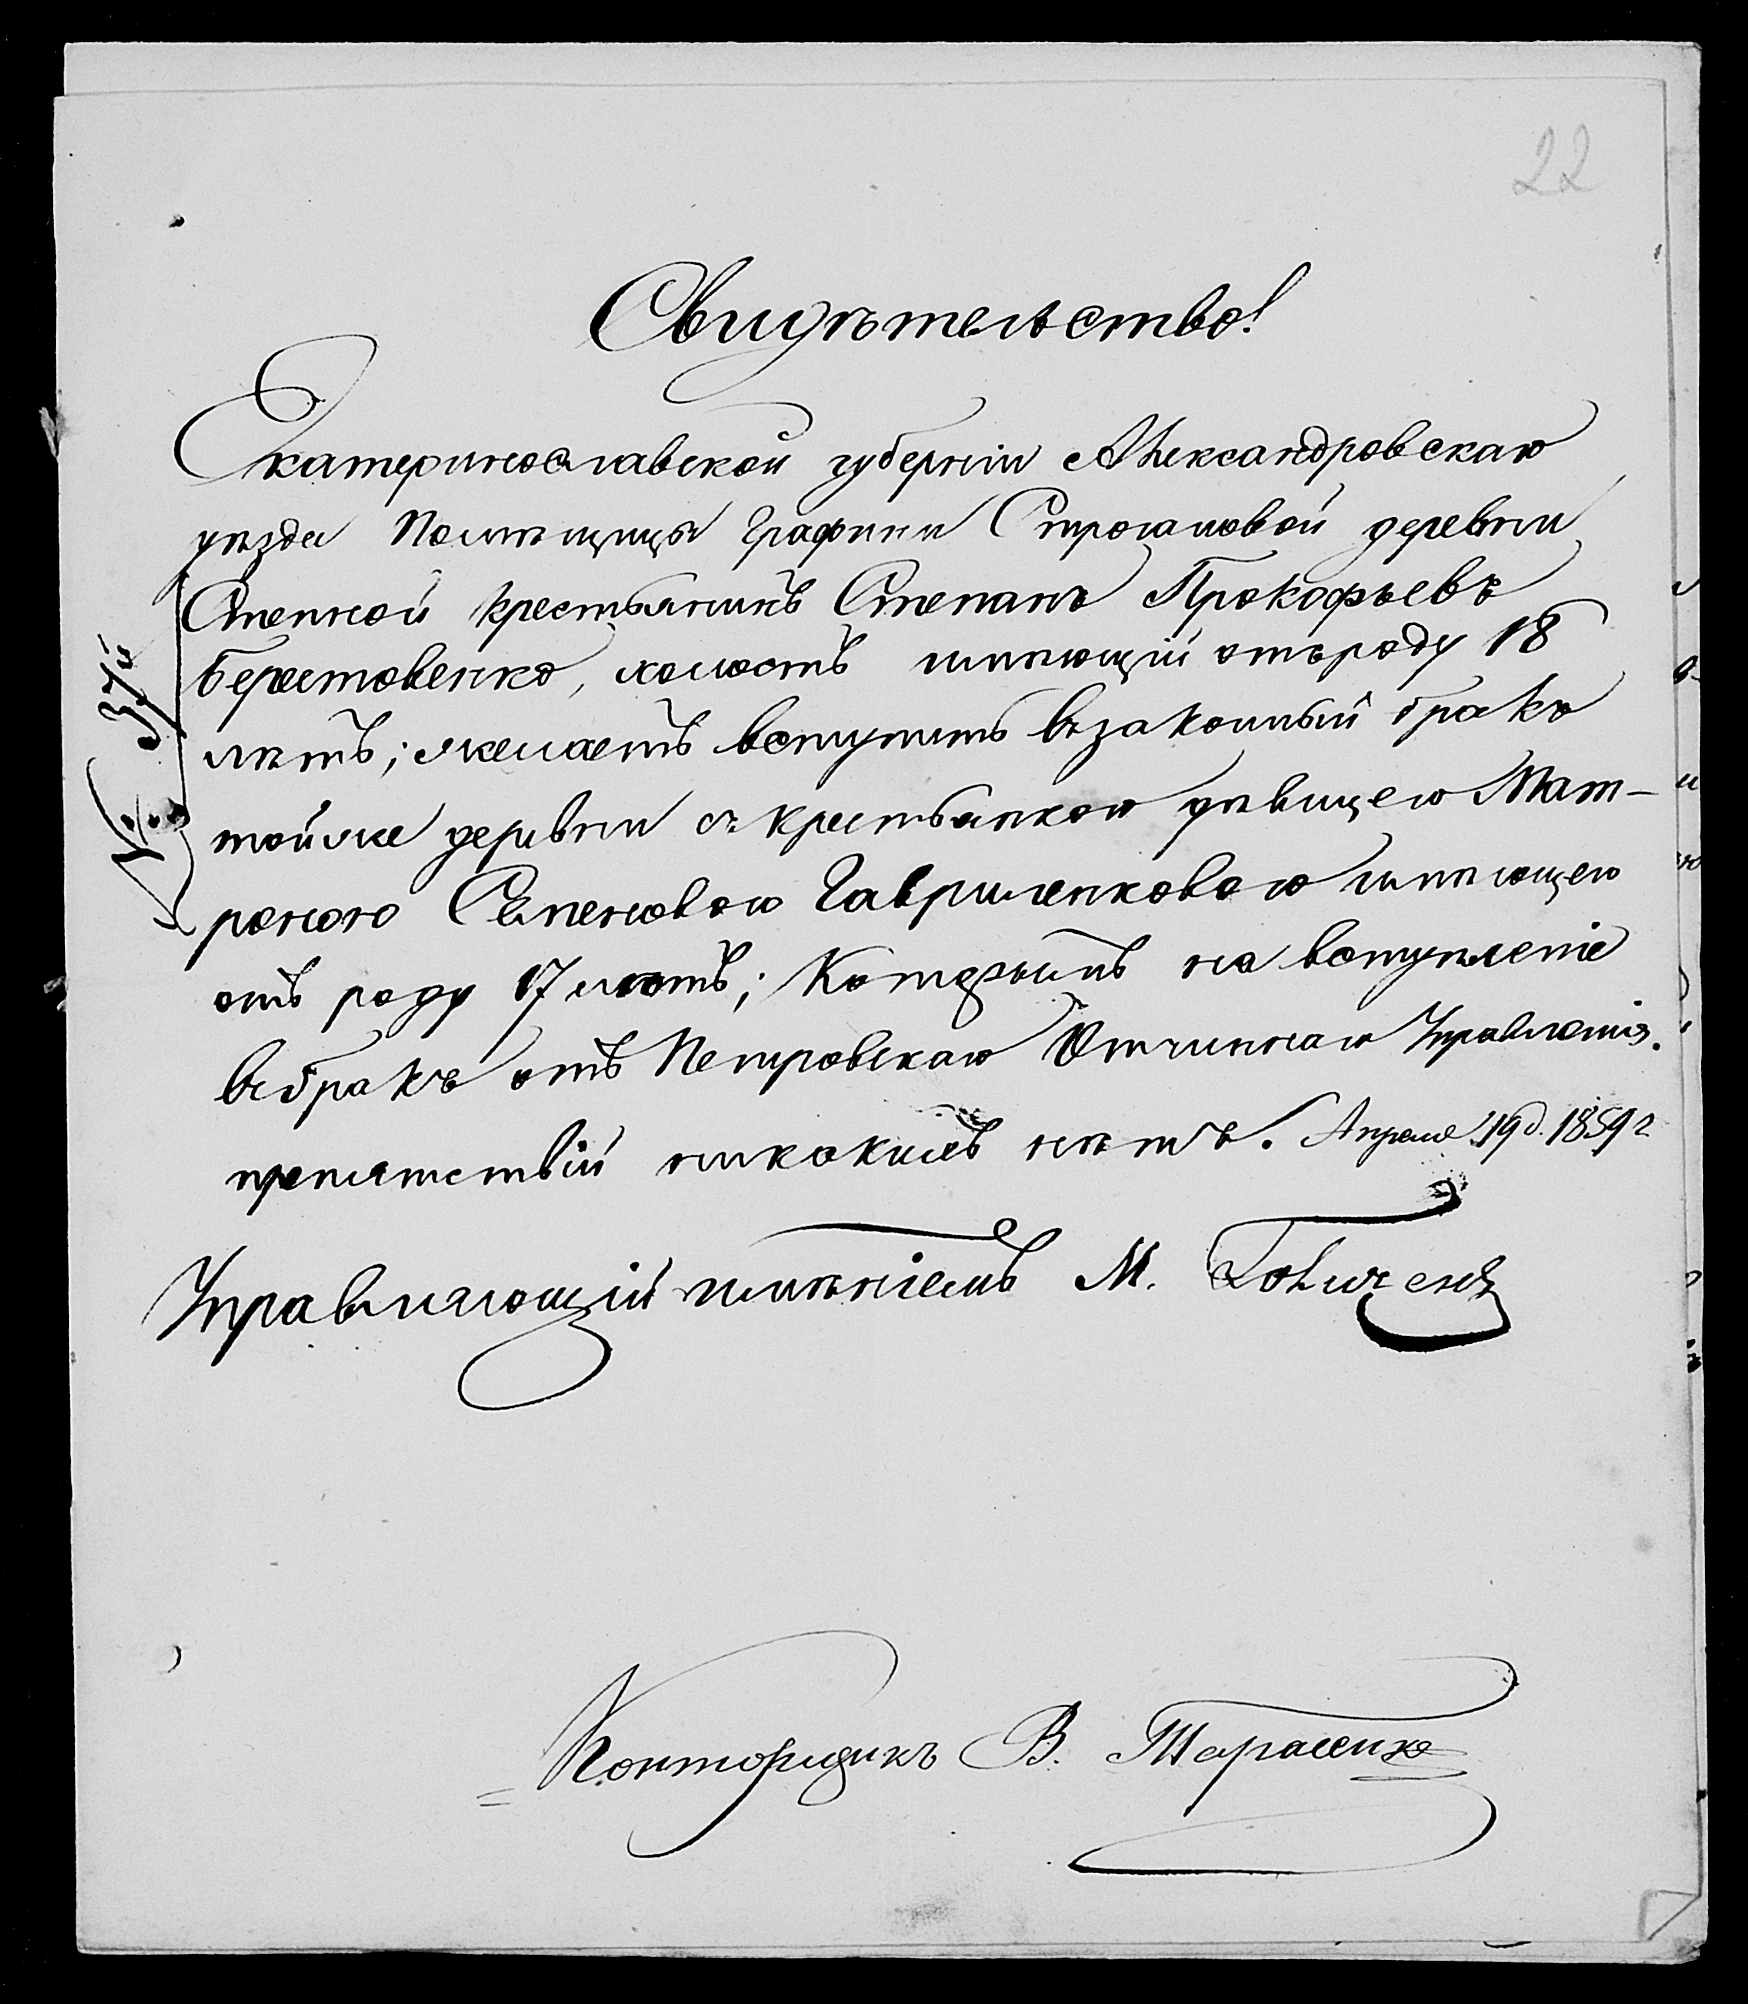 22
Свидѣтельство!
Екатеринославской губернiи Александровскаго
уѣзда Помѣщицы Графини Строгановой деревни
Степной крестьянинъ Степанъ Прокофьевъ
Берестовенко, холостъ имѣющiй отъ роду 18
лѣтъ; желаетъ вступить въ законный бракъ
той же деревни съ крестьянкою дѣвицею Мат-
роною Семеновою Гавриленковою имѣющею
отъ роду 17 лѣтъ; Которымъ на вступленiе
въ бракъ отъ Петровскаго Отчиннаго Управленiя
препятствiй никакихъ нѣтъ. Апреля 19 д. 1859 г.
№ 37й
Управляющiй имѣнiемъ М.
Конторщикъ В. Тарасенко